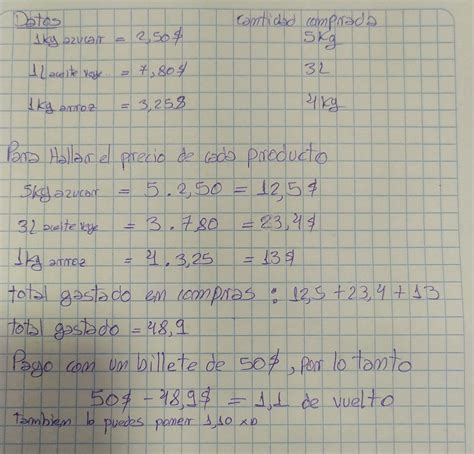 Datos cantidad comprada
1kg azucar = 2,50$ 5kg
1L aceite vege = 7,80$ 3L
1kg arroz = 3,25$ 4kg
Para Hallar el precio de cada producto
5kg azucar = 5 . 2,50 = 12,5$
3L aceite vege = 3 . 7,80 = 23,4$
1kg arroz = 4 . 3,25 = 13$
total gastado en compras : 12,5 + 23,4 + 13
total gastado = 48,9
Pago con un billete de 50$, por lo tanto
50$ - 48,9$ = 1,1 de vuelto
tambiem lo puedes poner 1,10 xD